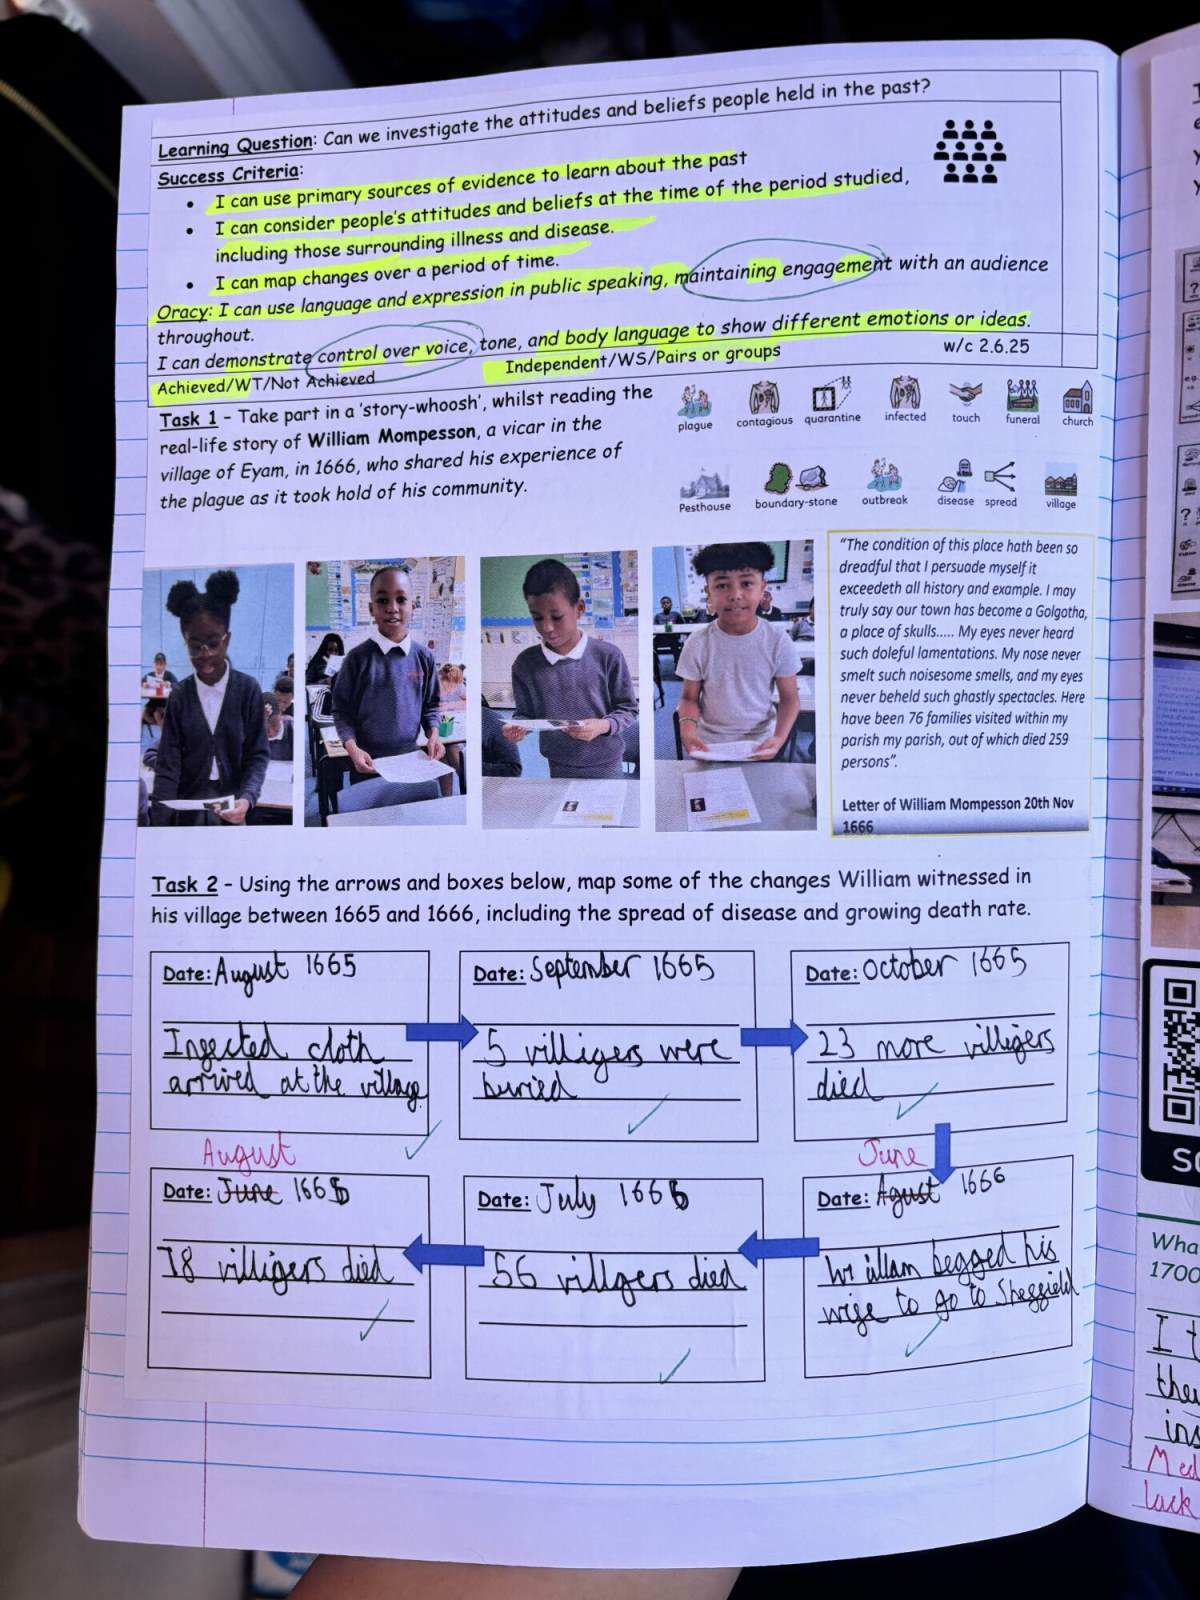 Learning Question: Can we investigate the attitudes and beliefs people held in the past?
Success Criteria:
• I can use primary sources of evidence to learn about the past
• I can consider people's attitudes and beliefs at the time of the period studied,
including those surrounding illness and disease.
• I can map changes over a period of time.
Oracy: I can use language and expression in public speaking, maintaining engagement with an audience
throughout.
I can demonstrate control over voice, tone, and body language to show different emotions or ideas.
Achieved/WT/Not Achieved
Independent/WS/Pairs or groups
w/c 2.6.25
Task 1 - Take part in a 'story-whoosh', whilst reading the
real-life story of William Mompesson, a vicar in the
village of Eyam, in 1666, who shared his experience of
the plague as it took hold of his community.
plague contagious quarantine infected touch funeral church
Pesthouse boundary-stone outbreak disease spread village
"The condition of this place hath been so
dreadful that I persuade myself it
exceedeth all history and example. I may
truly say our town has become a Golgotha,
a place of skulls..... My eyes never heard
such doleful lamentations. My nose never
smelt such noisesome smells, and my eyes
never beheld such ghastly spectacles. Here
have been 76 families visited within my
parish my parish, out of which died 259
persons".
Letter of William Mompesson 20th Nov
1666
Task 2 - Using the arrows and boxes below, map some of the changes William witnessed in
his village between 1665 and 1666, including the spread of disease and growing death rate.
Date: August 1665
Ingected cloth
arrived at the village
Date: September 1665
5 villigers were
buried
Date: October 1665
23 more villigers
died
June
Date: Agust 1666
William begged his
wige to go to Sheggield
Date: July 1666
56 villgers died
August
Date: June 1666
78 villigers died
Wha
1700
I t
the
ins
Med
luck